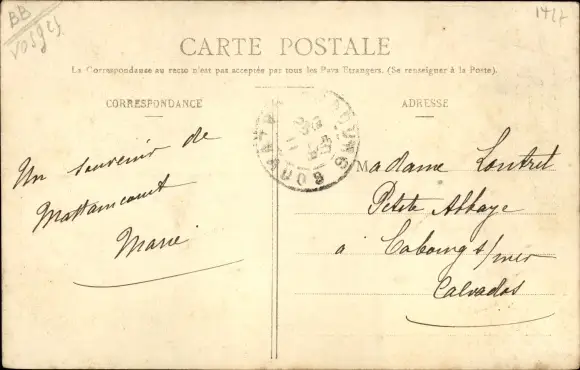 BB
VOSGES
CARTE POSTALE
La Correspondance au recto n'est pas acceptée par tous les Pays Etrangers. (Se renseigner à la Poste).
CORRESPONDANCE
Un souvenir de
Mattaincourt
Marie
ADRESSE
Madame Loutrel
Petite Abbaye
à Cabourg s/mer
Calvados